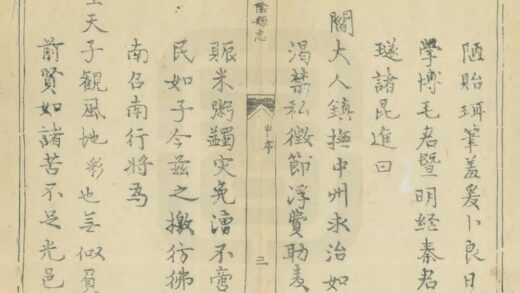 陋貽珥筆羞爰卜良日
學博毛君暨明經秦君
璲諸昆進曰
閻大人鎮撫中州求治如
渴禁私徵節浮費助麦
陰縣志
申序
三
賑米粥蠲灾免漕不啻
民如子今茲之檄彷彿
南召南行將為
天子觀風地彩也無似負
前賢如諸苦不足光邑